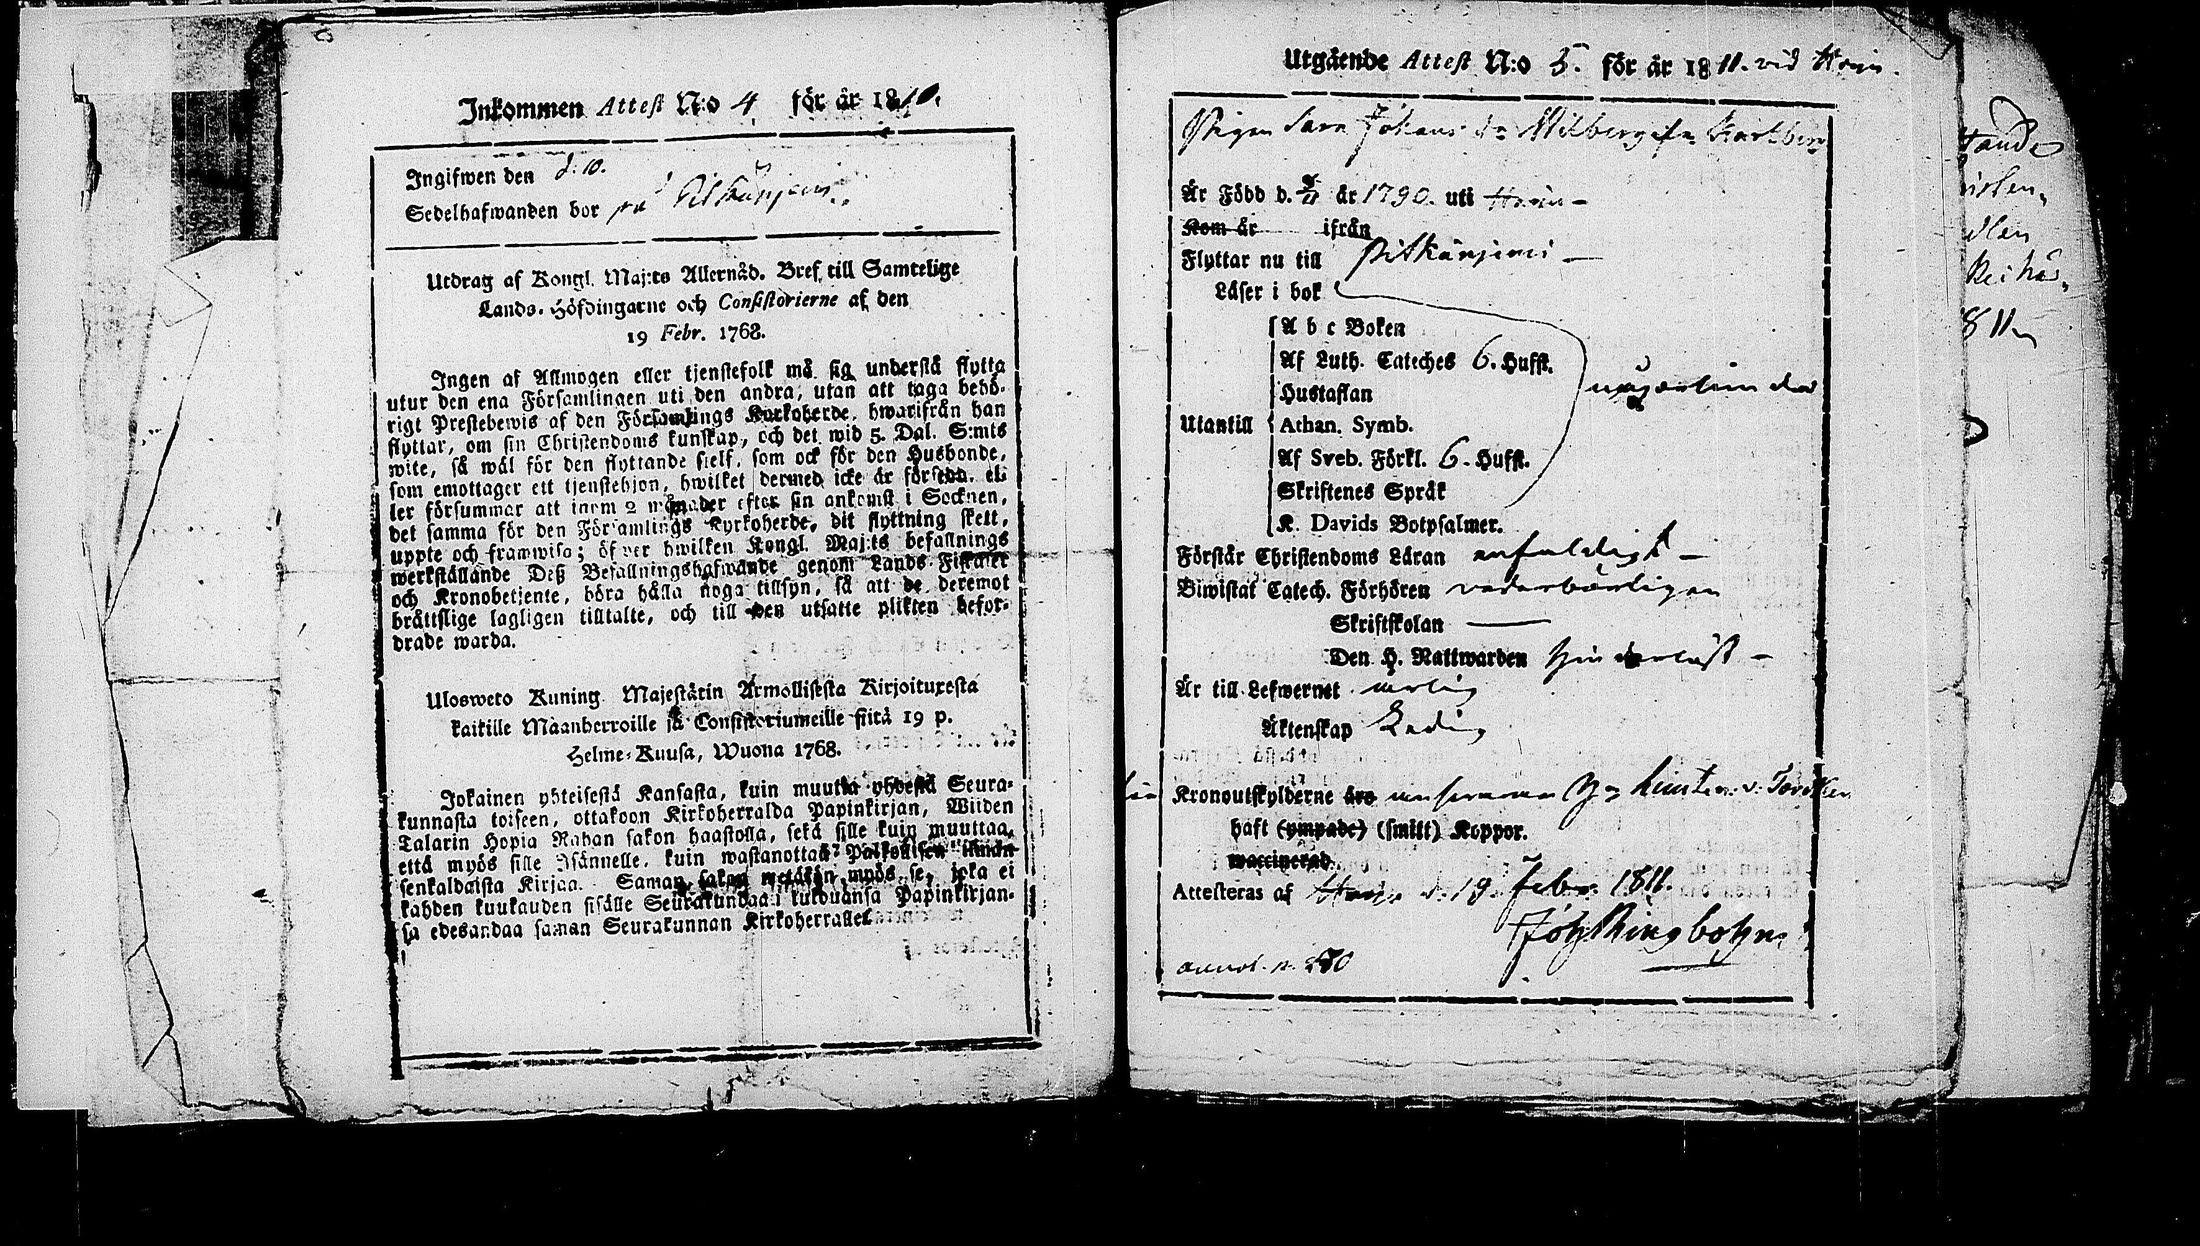 Inkommen Attest N:o 4 för år 1810.
Ingifwen den d. 10.
Sedelhafwanden bor på Pitkänjemi.
Utdrag af Kongl. Maj:ts Allernåd. Bref till Samtelige
Lands-Höfdingarne och Consistorierne af den
19 Febr. 1768.
Ingen af Allmogen eller tjenstefolk må sig understå flytta
utur den ena Församlingen uti den andra, utan att taga behö-
rigt Prestebewis af den Församlings Kyrkoherde, hwarifrån han
flyttar, om sin Christendoms kunskap, och det wid 5. Dal. S:mts
wite, så wäl för den flyttande sielf, som ock för den Husbonde,
som emottager ett tjenstehjon, hwilket dermed icke är försedd, el-
ler försummar att inom 2 månader efter sin ankomst i Socknen,
det samma för den Församlings Kyrkoherde, dit flyttning skett,
uppte och framwisa; öfwer hwilken Kongl. Maj:ts befallnings
werkställande Deß Befallningshafwande genom Lands-Fiskaler
och Kronobetjente, böra hålla noga tillsyn, så att de deremot
bråttslige lagligen tilltalte, och till den utsatte plikten befor-
drade warda.
Ulosweto Kuning. Majestärin Armollisesta Kirjoituxesta
kaikille Maanherroille ja Consistoriumeille siitä 19 p.
Helme-Kuusa, Wuona 1768.
Jokainen yhteisestä Kansasta, kuin muutta yhdestä Seura-
kunnasta toiseen, ottakoon Kirkoherralda Papinkirjan, Wiiden
Talarin Hopia Rahan sakon haastolla, sekä sille kuin muuttaa,
että myös sille Isännelle, kuin wastanottaa Palkollisen ilman
senkaldaista Kirjaa. Saman sakon wetäkön myös se, joka ei
kahden kuukauden sisälle Seurakundaan tuldouansa Papinkirjan-
sa edesandaa saman Seurakunnan Kirkoherrallet.
Utgående Attest N:o 5. för år 1811. vid
Pigan Sara Johans dr
Är Född d. år 1790. uti
Kom år ifrån
Flyttar nu till Pitkänjemi
Läser i bok
A b c Boken
Af Luth. Cateches 6. Hufst.
Hustaflan
Utantill Athan. Symb.
Af Sveb. Förkl. 6. Hufst.
Skriftenes Språk
K. Davids Botpsalmer.
Förstår Christendoms Läran enfaldigt
Biwistat Catech. Förhören vederbörligen
Skriftskolan
Den H. Nattwarden
Är till Lefwernet ärlig
Äktenskap Ledig
Kronoutskylderne äro
haft (ympade) (smitt) Koppor.
waccinerad
Attesteras af d. 19 Febr. 1811.
Joh Ringbohm
annot. n.